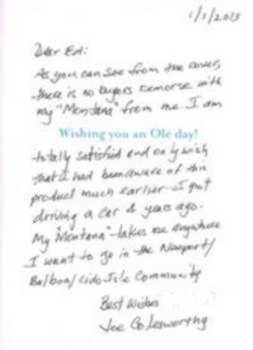 1/1/2013
Dear Ed:
As you can see from the cover,
there is no buyers remorse with
my "Montana" from me I am
Wishing you an Ole day!
totally satisfied and only wish
that I had been aware of this
product much earlier - I quit
driving a car 2 years ago.
My "Montana" takes me anywhere
I want to go in the Newport/
Balboa/Lido Isle Community
Best Wishes
Joe Colesworthy